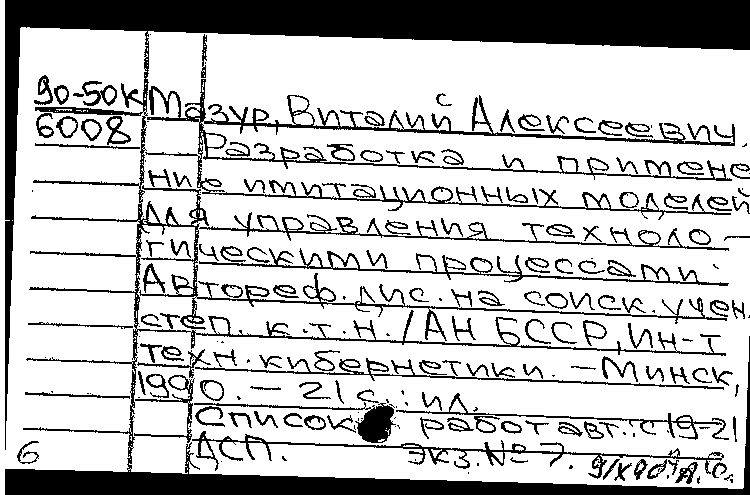 90-50К Мазур, Виталий Алексеевич.
6008 Разработка и примене
ние имитационных моделей
для управления техноло-
гическими процессами:
Автореф. дис. на соиск. учен.
степ. к.т.н. / АН БССР, Ин-т
техн. кибернетики. - Минск,
1990. - 21 с. : ил.
Список работ авт.: с 19-21
6 ДСП. Экз. № 7.